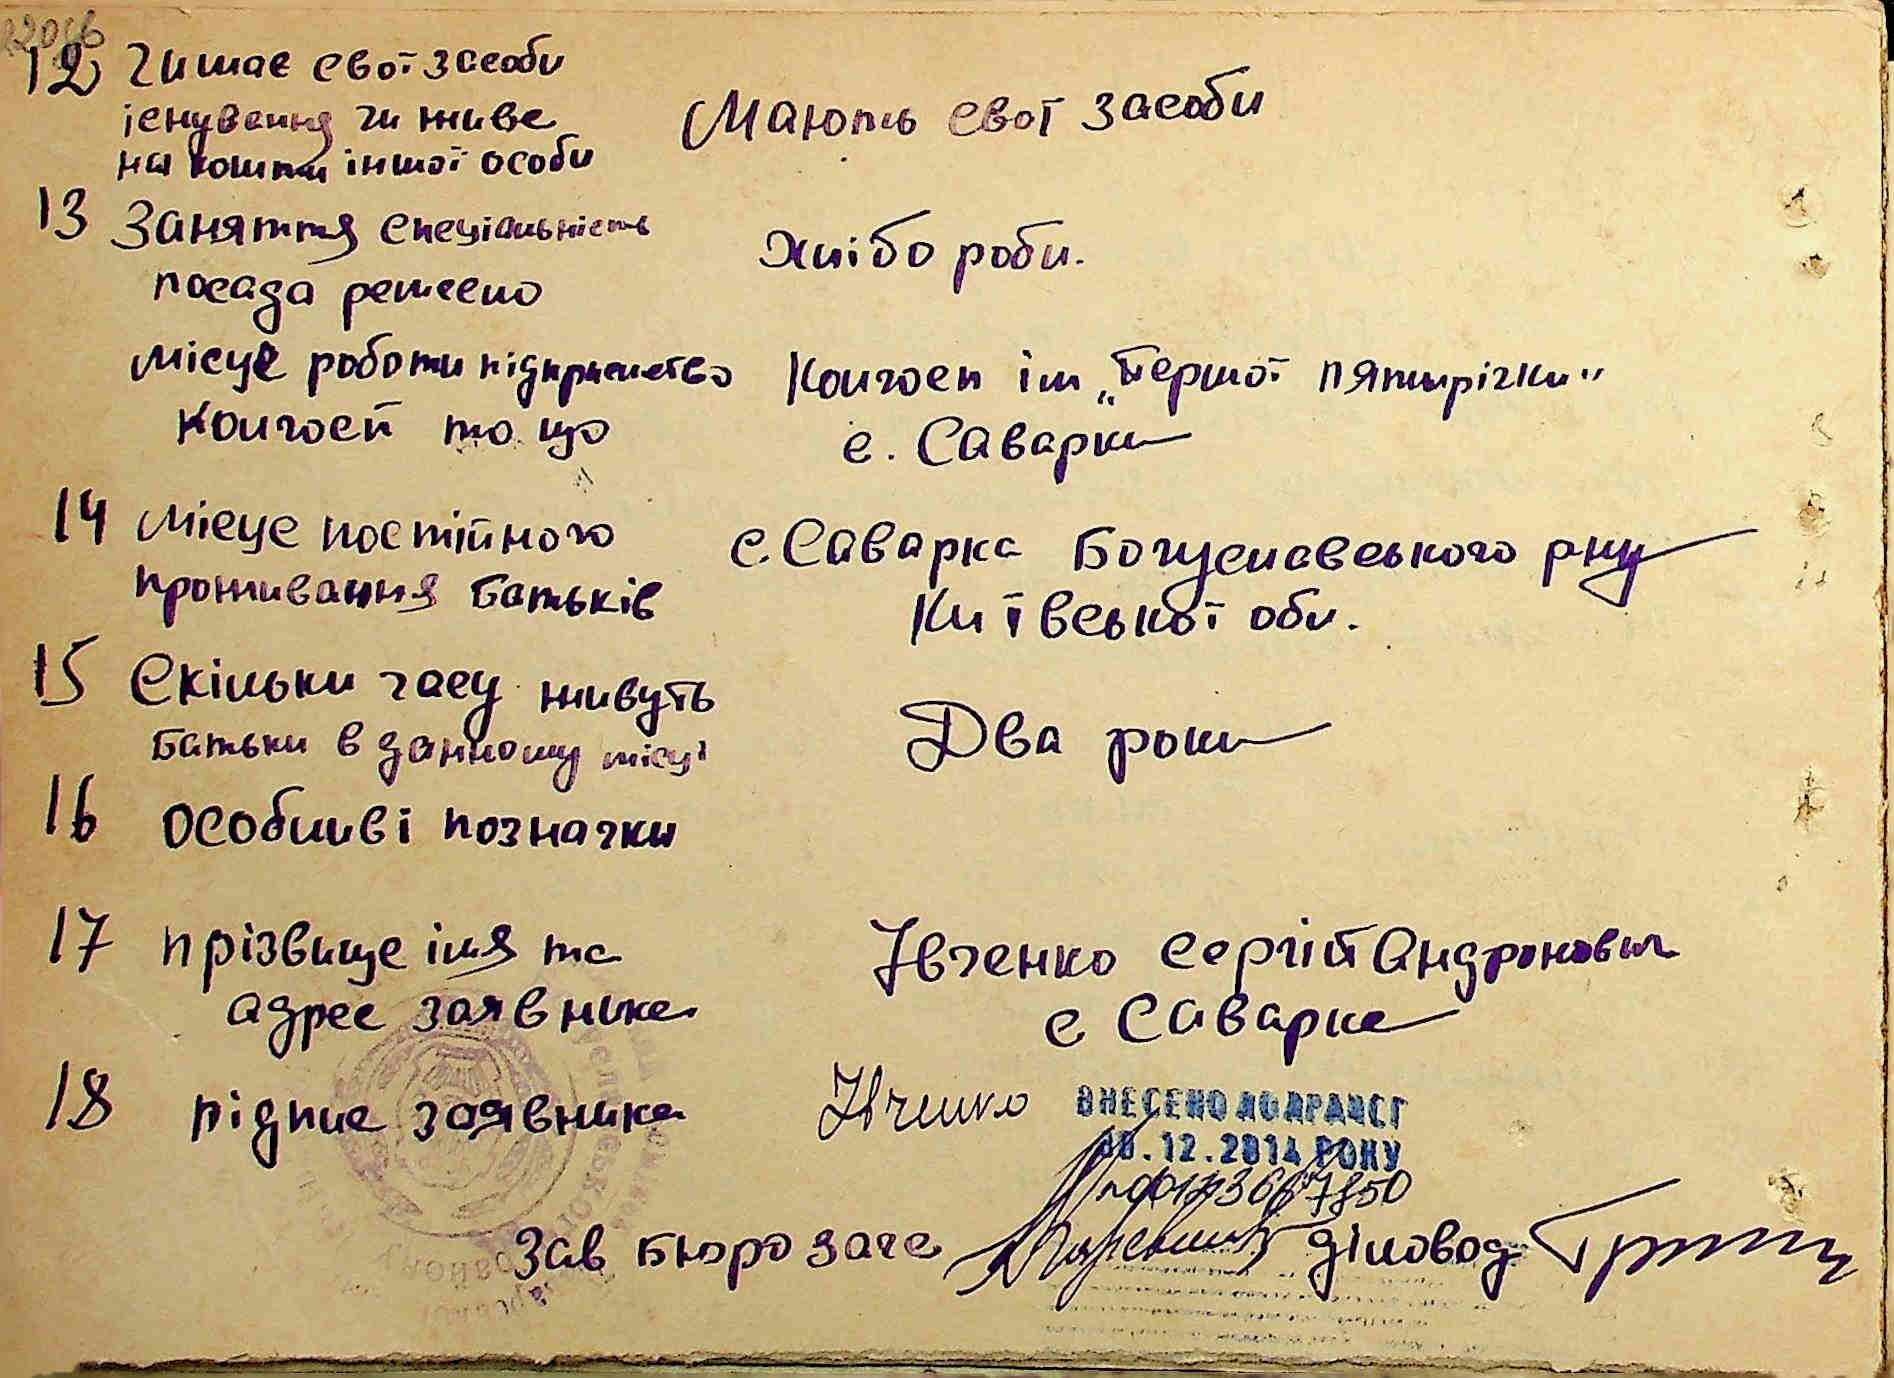 12 Чи має свої засоби
існування чи живе
на кошти іншої особи
Мають свої засоби
13 Заняття спеціальність
посада ремесло
Хлібороби.
місце роботи підприємство
колгосп то що
Колгосп ім „Першої пятирічки"
с. Саварки
14 місце постійного
проживання батьків
с. Саварка Богуславського рну
Київської обл.
15 Скільки часу живуть
батьки в данному місці
Два роки
16 особливі позначки
17 прізвище імя та
адрес заявника
Івченко Сергій Андронович
с Саварка
18 підпис заявника
Івченко
ВНЕСЕНО ДО ДРАЦСГ
.12.2014 РОКУ
Зав бюро загс
діловод